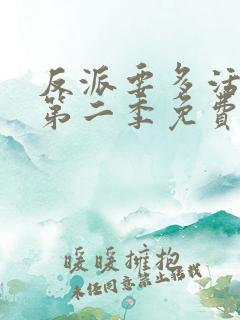 反派要多活
第二季免費
暖暖擁抱
未經同意禁止轉載